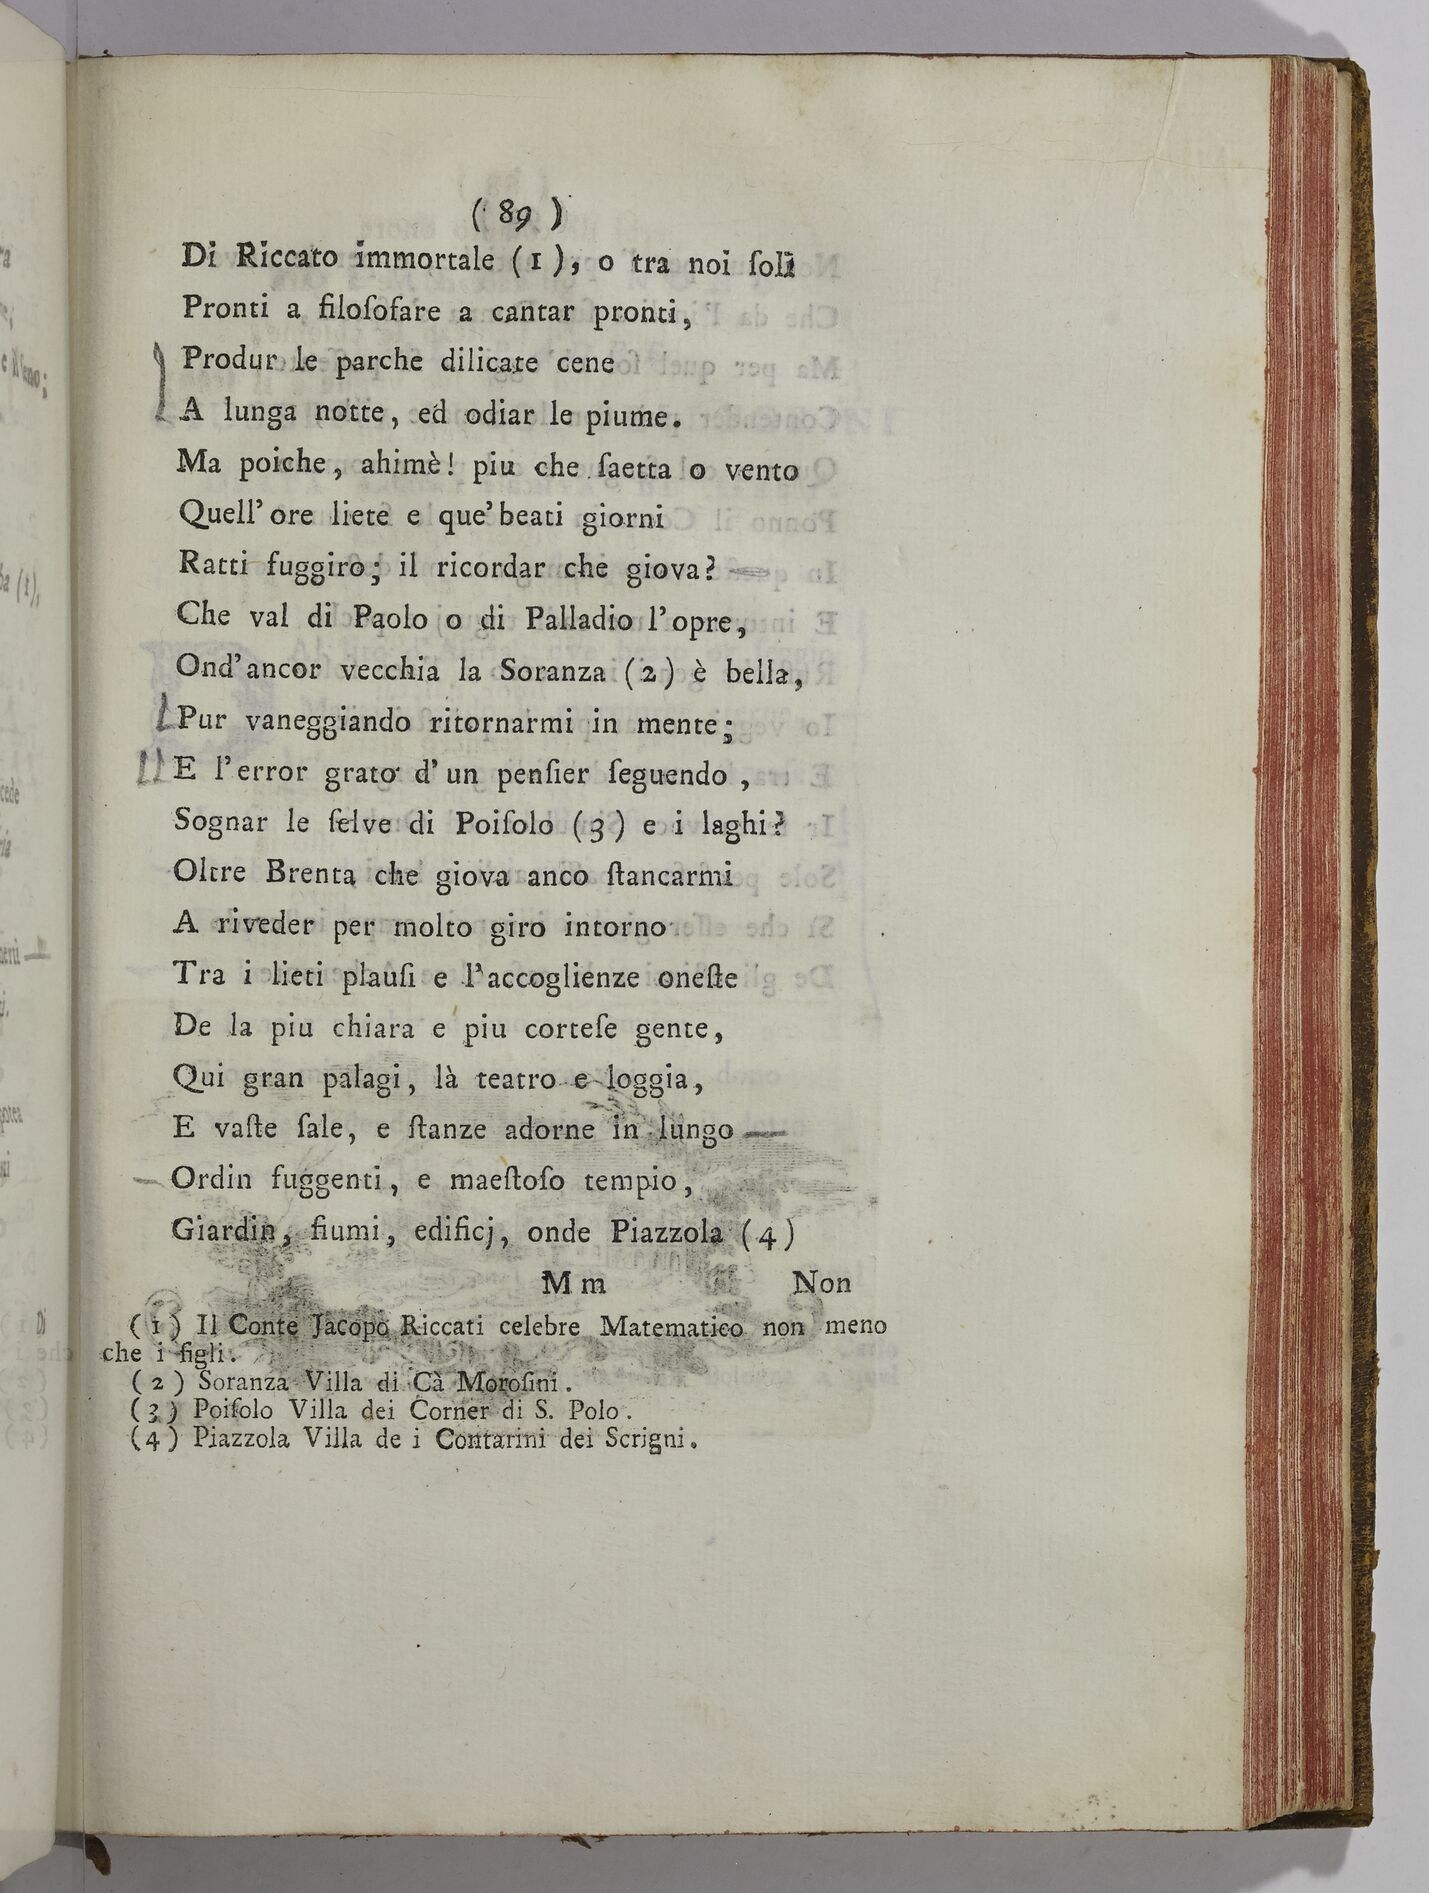 ( 89 )
Di Riccato immortale (1), o tra noi ſoli
Pronti a filoſofare a cantar pronti,
Produr le parche dilicate cene
A lunga notte, ed odiar le piume.
Ma poiche, ahimè! piu che ſaetta o vento
Quell' ore liete e que' beati giorni
Ratti fuggiro; il ricordar che giova?
Che val di Paolo o di Palladio l'opre,
Ond' ancor vecchia la Soranza (2) è bella,
Pur vaneggiando ritornarmi in mente;
E l'error grato d' un penſier ſeguendo,
Sognar le ſelve di Poiſolo (3) e i laghi?
Oltre Brenta che giova anco ſtancarmi
A riveder per molto giro intorno
Tra i lieti plauſi e l'accoglienze oneſte
De la piu chiara e piu corteſe gente,
Qui gran palagi, là teatro e loggia,
E vaſte ſale, e ſtanze adorne in lungo
Ordin fuggenti, e maeſtoſo tempio,
Giardin, fiumi, edificj, onde Piazzola (4)
M m Non
(1) Il Conte Jacopo Riccati celebre Matematico non meno
che i figli.
(2) Soranza Villa di Cà Moroſini.
(3) Poiſolo Villa dei Corner di S. Polo.
(4) Piazzola Villa de i Contarini dei Scrigni.